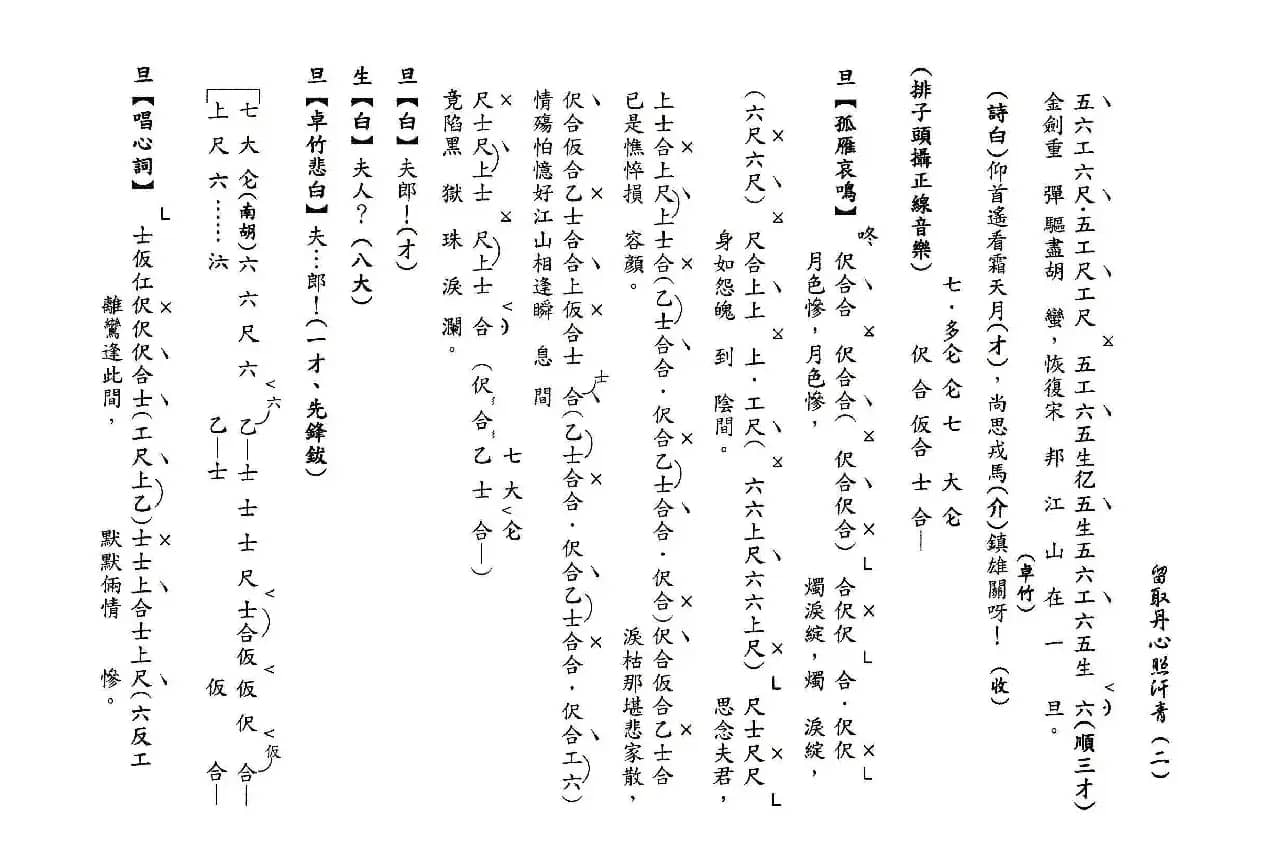 留取丹心照汗青（二）
五六工六尺·五工尺工尺 五工六五生亿五生五六工六五生 六（順三才）
金劍重 彈驅盡胡 蠻，恢復宋 邦 江 山 在 一 旦。
（卓竹）
（詩白）仰首遙看霜天月（才），尚思戎馬（介）鎮雄關呀！（收）
七·多仑仑七 大仑
（排子頭攝正線音樂） 伬合仮合士合—
旦【孤雁哀鳴】咚 伬合合 伬合合（ 伬合伬合）合伬伬 合·伬伬
月色慘，月色慘， 燭淚綻，燭 淚綻，
（六尺六尺） 尺合上上 上·工尺（ 六六上尺六六上尺） 尺士尺尺
身如怨魄 到 陰間。 思念夫君，
上士合上尺上士合（乙士合合·伬合乙士合合·伬合）伬合仮合乙士合
已是憔悴損 容顏。 淚枯那堪悲家散，
伬合仮合乙士合合上仮合士 合（乙士合合·伬合乙士合合·伬合工六）
士
情殤怕憶好江山相逢瞬 息 間
七大仑
尺士尺上士 尺上士 合（伬合乙士合—）
竟陷黑 獄 珠 淚 瀾。
旦【白】夫郎！（才）
生【白】夫人？（八大）
旦【卓竹悲白】夫…郎！（一才、先鋒鈸）
六 仮
七大仑（南胡）六六尺六 乙—士士士尺士合仮仮伬 合—
上尺六…… 乙—士 仮 合—
旦【唱心詞】 士仮仜伬伬伬合士（工尺上乙）士士上合士上尺（六反工
離鸞逢此間， 默默倆情 慘。